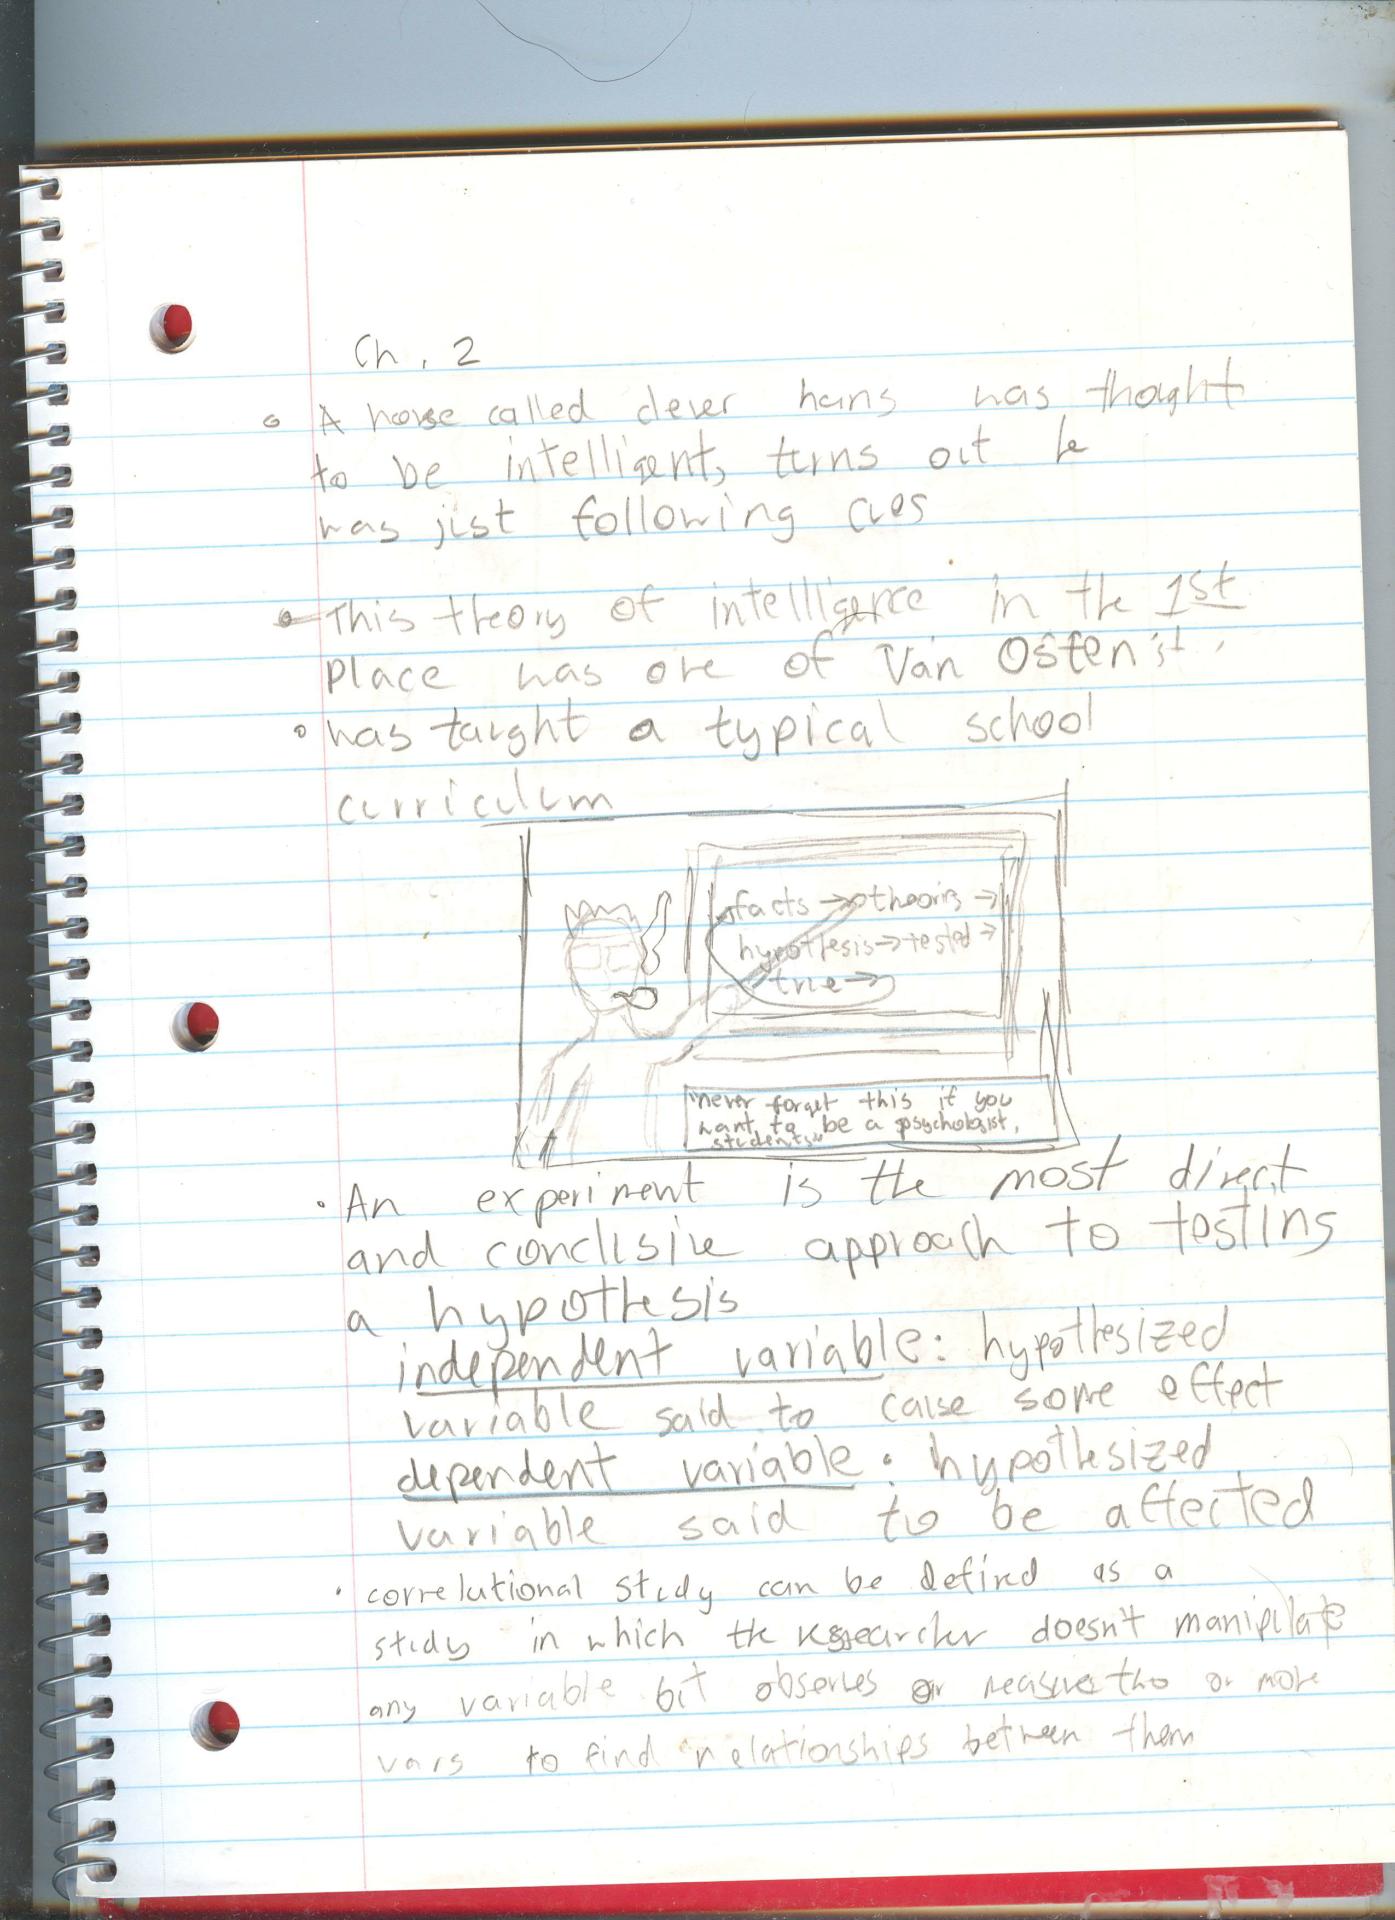 Ch. 2
A horse called clever hans was thought
to be intelligent, turns out he
was just following cues
This theory of intelligence in the 1st
Place was one of Van Osten's
was taught a typical school
curriculum
facts → theoris →
hypothesis → tested →
true →
"never forget this if you
want to be a psychologist,
students"
An experiment is the most direct
and conclusive approach to testing
a hypothesis
independent variable: hypothesized
variable said to cause some effect
dependent variable: hypothesized
variable said to be affected
correlational study can be defined as a
study in which the researcher doesn't manipulate
any variable but observes or measures two or more
vars to find relationships between them